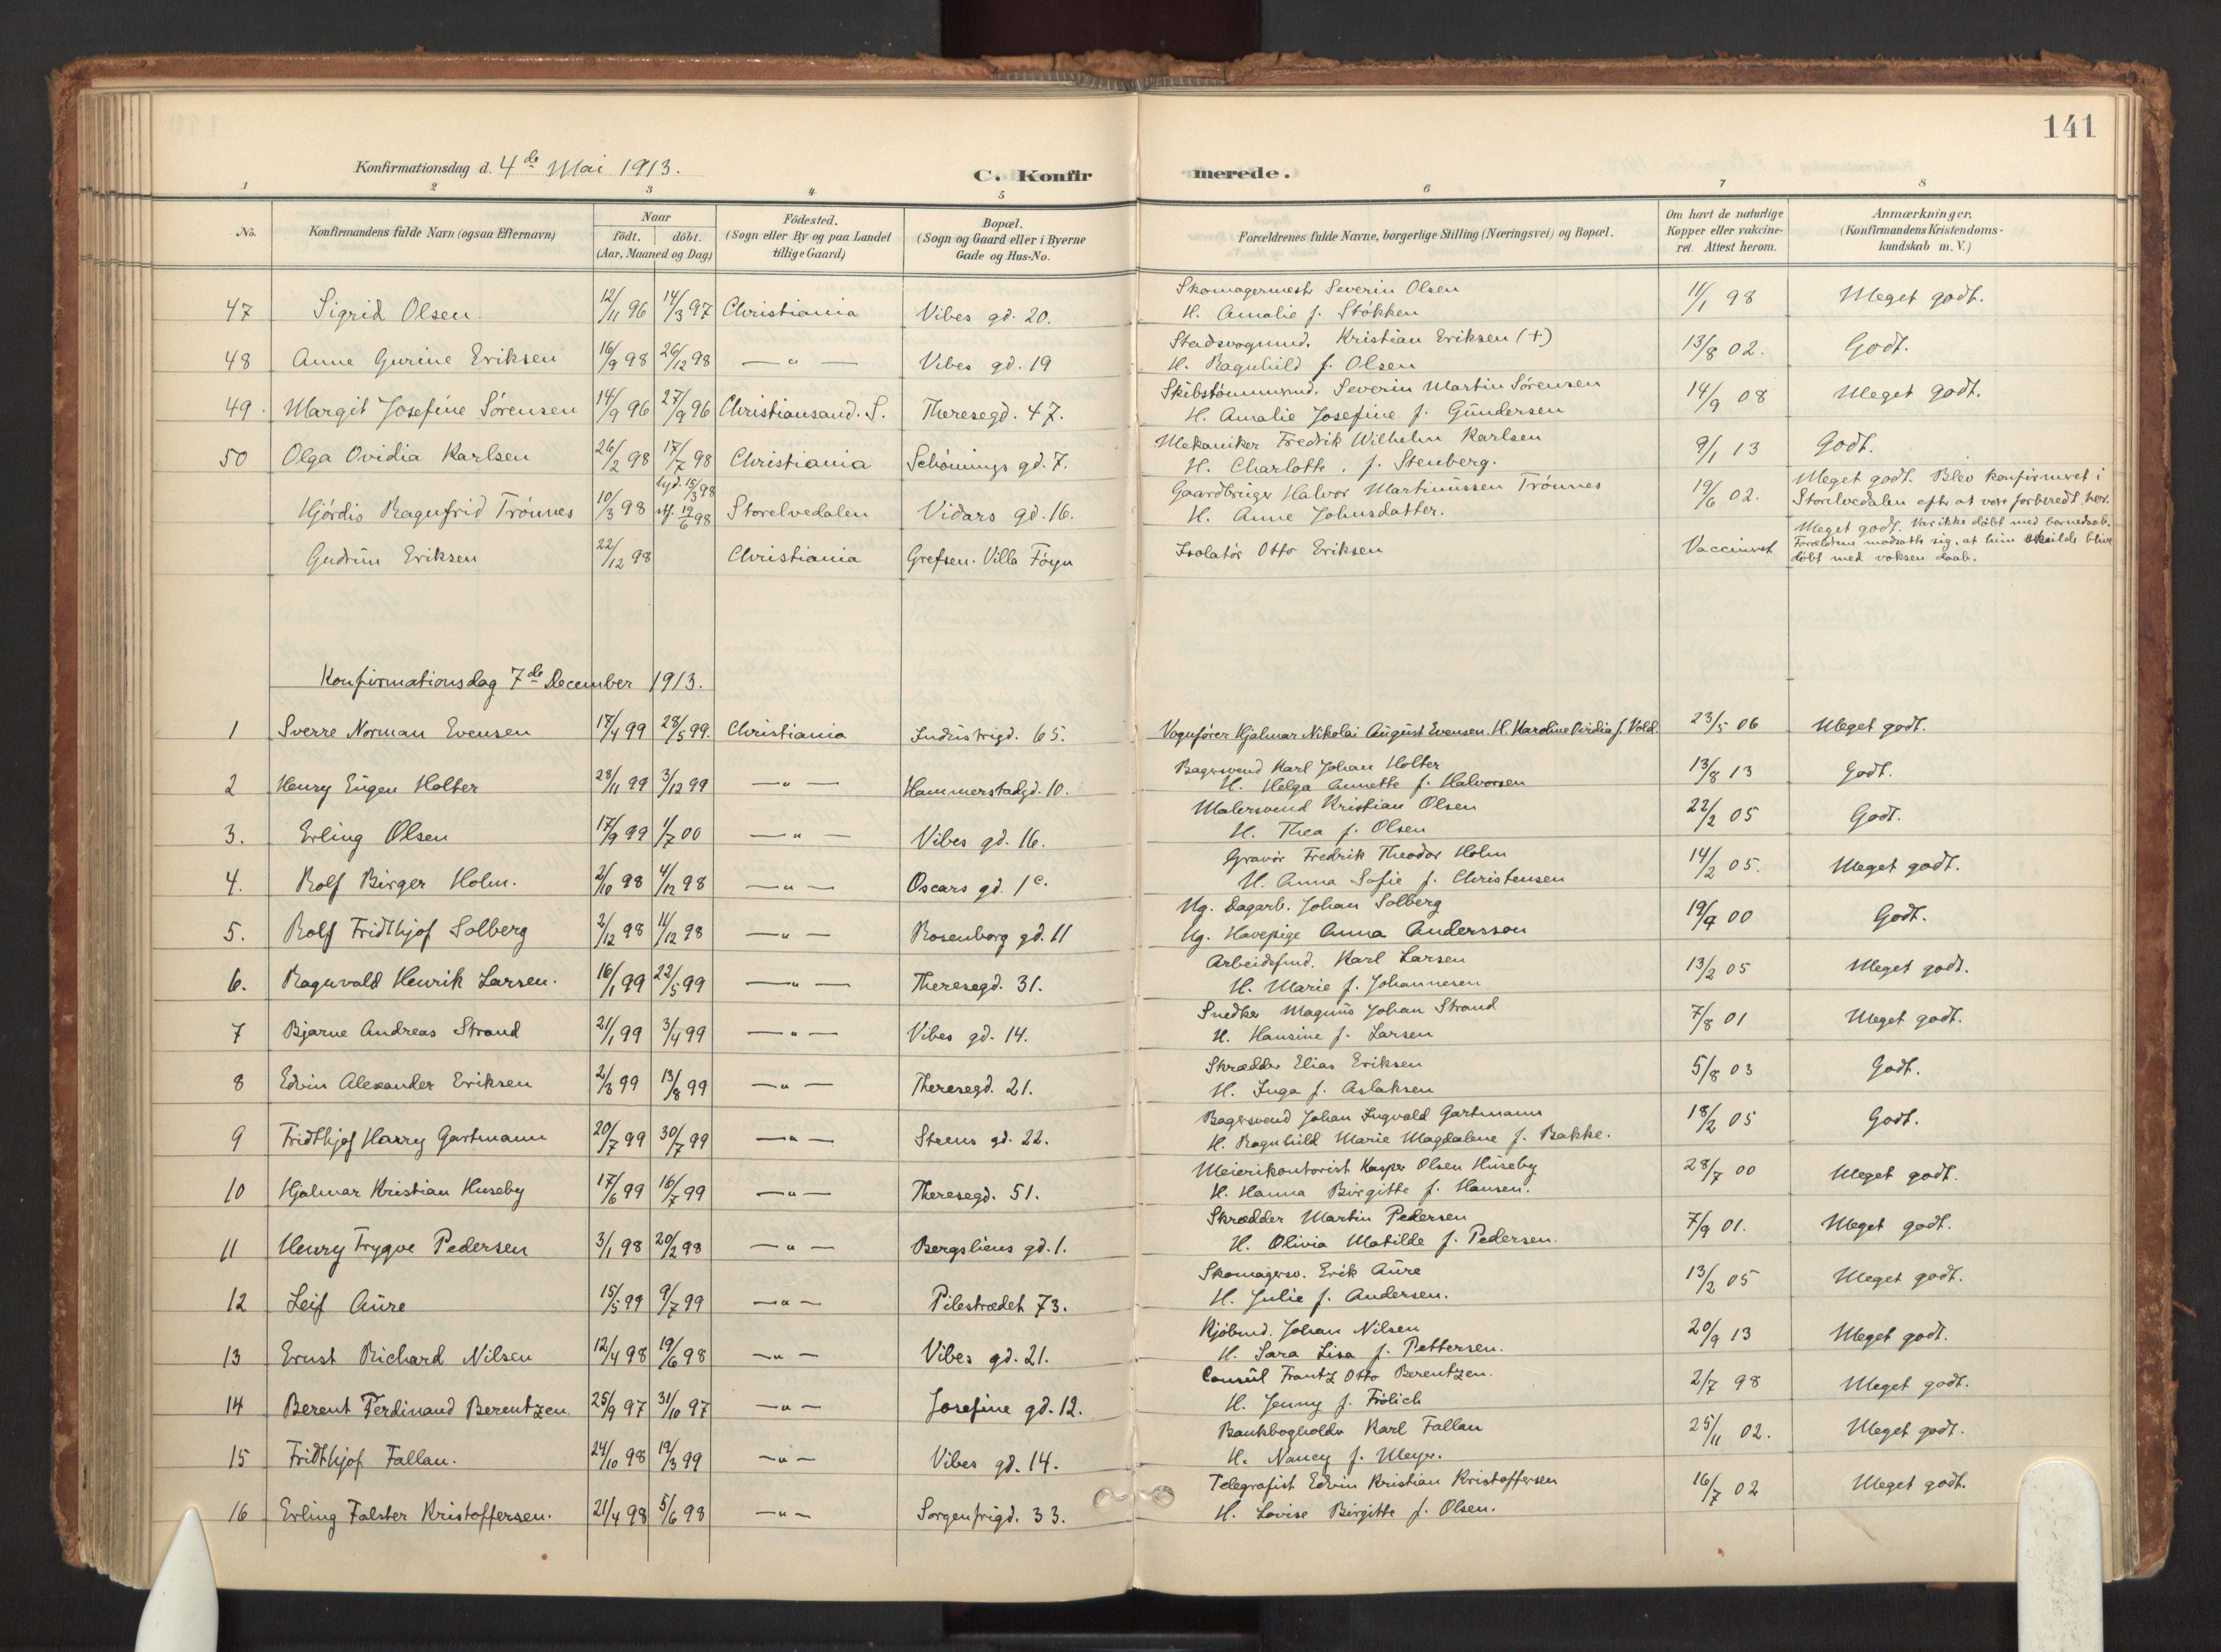 141
Konfirmationsdag d. 4de Mai 1913.
C. Konfirmerede.
1 2 3 4 5 6 7 8
No. | Konfirmandens fulde Navn (ogsaa Efternavn) | Naar födt. döbt. (Aar, Maaned og Dag) | Födested. (Sogn eller By og paa Landet tillige Gaard) | Bopæl. (Sogn og Gaard eller i Byerne Gade og Hus-No. | Forældrenes fulde Navne, borgerlige Stilling (Næringsvei) og Bopæl. | Om havt de naturlige Kopper eller vaccineret. Attest herom. | Anmærkninger. (Konfirmandens Kristendomskundskab m. V.)
47 Sigrid Olsen 12/11 96 14/3 97 Christiania Vibes gd. 20. Skomagermest Severin Olsen H. Amalie f. Stökken 11/1 98 Meget godt.
48 Anne Gurine Eriksen 16/9 98 26/12 98 — " — Vibes gd. 19 Kristian Eriksen (+) H. Ragnhild f. Olsen 13/8 02. Godt.
49. Margit Josefine Sörensen 14/9 96 27/9 96 Christiansand. S. Theresegd. 47. Skibstömmermd. Severin Martin Sörensen H. Amalie Josefine f. Gundersen 14/9 08 Meget godt.
50 Olga Ovidia Karlsen 26/2 98 17/7 98 Christiania Schönings gd. 7. Mekaniker Fredrik Wilhelm Karlsen H. Charlotte, f. Stenberg. 9/1 13 Godt.
Hjördis Ragnfrid Trönnes 10/3 98 hjd. 15/3 98 stf. 12/6 98 Storelvedalen Vidars gd. 16. Gaardbruger Halvor Martinussen Trönnes H. Anne Johnsdatter. 19/6 02. Meget godt. Blev konfirmeret i Storelvedalen efter at være forberedt her.
Gudrun Eriksen 22/12 98 Christiania Grefsen. Villa Föyn Isolatör Otto Eriksen Vaccineret Meget godt. Var ikke döbt med barnedaab. Forældrene modsatte sig, at hun skulde blive döbt med voksen daab.
Konfirmationsdag 7de December 1913.
1 Sverre Norman Evensen 17/4 99 28/5 99. Christiania Industrigd. 65. Vognförer Hjalmar Nikolai August Evensen. H. Karoline Ovidia f. Vold. 23/5 06 Meget godt.
2 Henry Eugen Holter 28/11 99 3/12 99 — " — Hammerstadgd. 10. Bagersvend Karl Johan Holter H. Helga Annette f. Halvorsen 13/8 13 Godt.
3. Erling Olsen 17/9 99 1/7 00 — " — Vibes gd. 16. Malersvend Kristian Olsen H. Thea f. Olsen 22/2 05 Godt.
4. Rolf Birger Holm. 2/10 98 4/12 98 — " — Oscars gd. 1c. Gravör Fredrik Theodor Holm H. Anna Sofie f. Christensen 14/2 05. Meget godt.
5. Rolf Fridthjof Solberg 2/12 98 11/12 98 — " — Rosenborg gd. 11 Ug. Dagarb. Johan Solberg Ug. Havepige Anna Andersson 19/9 00 Godt.
6. Ragnvald Henrik Larsen. 16/1 99 22/5 99 — " — Theresegd. 31. Arbeidsfmd. Karl Larsen H. Marie f. Johannesen 13/2 05 Meget godt.
7 Bjarne Andreas Strand 21/1 99 3/4 99 — " — Vibes gd. 14. Snedker Magnus Johan Strand H. Hansine f. Larsen 7/8 01 Meget godt.
8 Edvin Alexander Eriksen 2/3 99 13/8 99 — " — Theresegd. 21. Skrædder Elias Eriksen H. Inga f. Aslaksen 5/8 03 Godt.
9 Fridthjof Harry Gartmann 20/7 99 30/7 99 — " — Steens gd. 22. Bagersvend Johan Ingvald Gartmann H. Ragnhild Marie Magdalene f. Bakke. 18/2 05 Godt.
10 Hjalmar Kristian Huseby 17/6 99 16/7 99 — " — Theresegd. 51. Meierikontorist Kasper Olsen Huseby H. Hanna Birgitte f. Hansen. 28/7 00 Meget godt.
11 Henry Trygve Pedersen 3/1 98 20/2 98 — " — Bergsliens gd. 1. Skrædder Martin Pedersen H. Olivia Matilde f. Pedersen. 7/9 01. Meget godt.
12 Leif Aure 15/5 99 9/7 99 — " — Pilestrædet 73. Skomagersv. Erik Aure H. Julie f. Andersen. 13/2 05 Meget godt.
13 Ernst Richard Nilsen 12/4 98 19/6 98 — " — Vibes gd. 21. Kjöbmd. Johan Nilsen H. Sara Lisa f. Pettersen. 20/9 13 Meget godt.
14 Berent Ferdinand Berentzen 25/9 97 31/10 97 — " — Josefine gd. 12. Consul Frantz Otto Berentzen. H. Jenny f. Frölich 2/7 98 Meget godt.
15 Fridthjof Fallan. 24/10 98 19/3 99 — " — Vibes gd. 14. Bankbogholder Karl Fallan H. Nancy f. Meyer. 25/11 02. Meget godt.
16 Erling Falster Kristoffersen. 21/4 98 5/6 98 — " — Sorgenfrigd. 33. Telegrafist Edvin Kristian Kristoffersen H. Lovise Birgitte f. Olsen. 16/7 02 Meget godt.